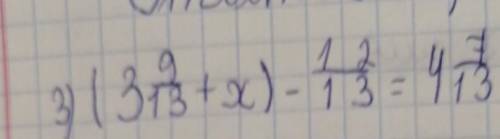 3) (3 9/13 + x) - 12/13 = 4 7/13